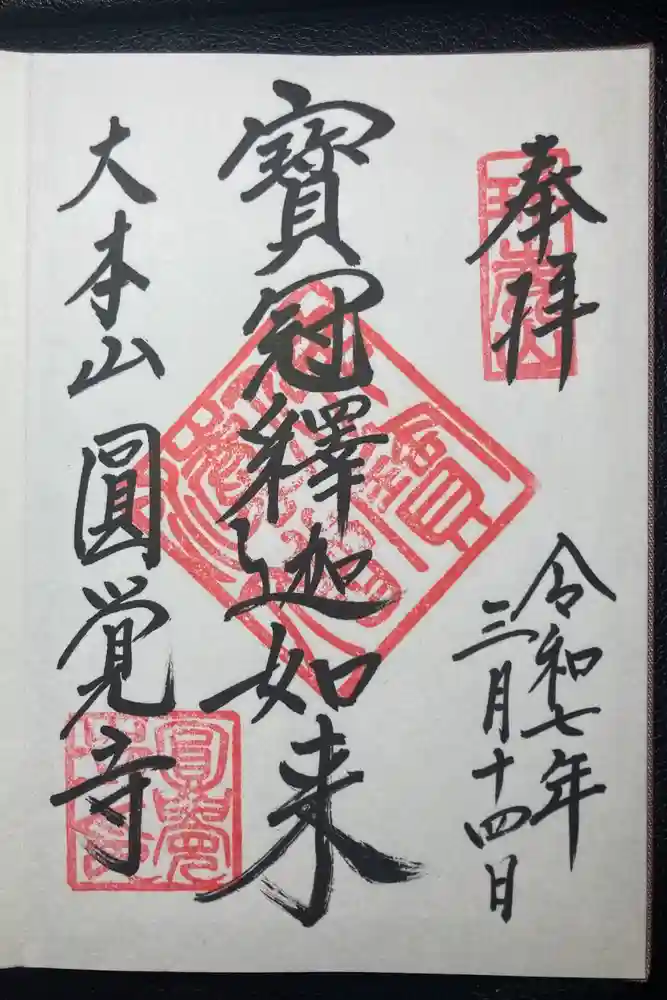 奉拝
令和七年
三月十四日
寶冠釋迦如来
大本山圓覚寺